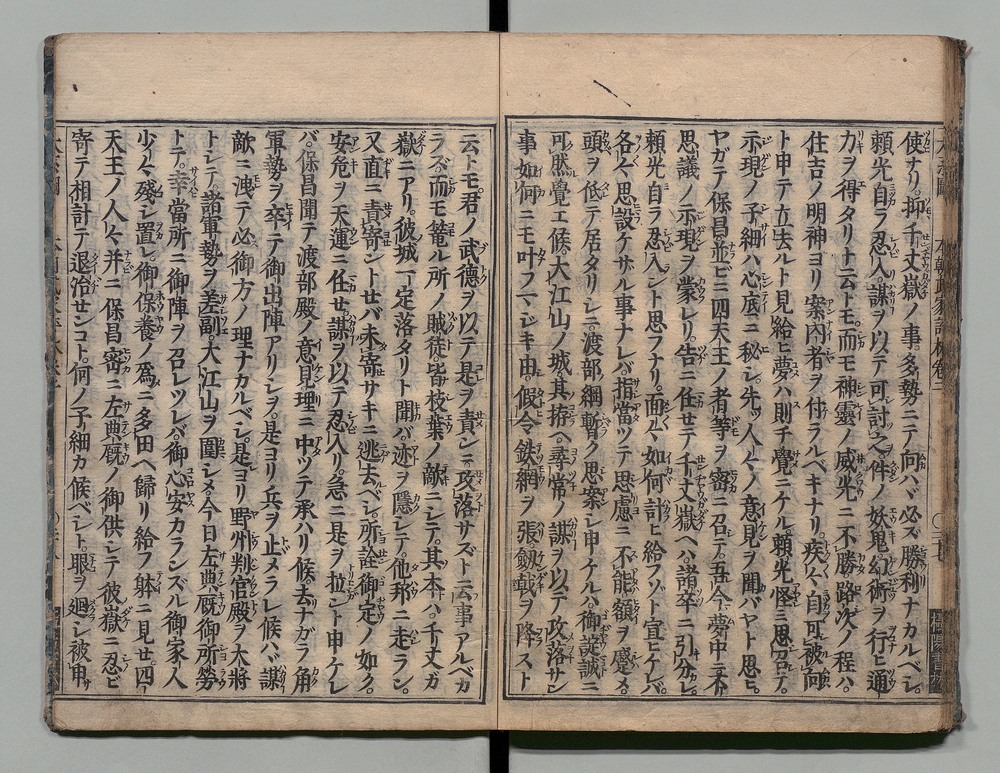 使ナリ。抑千丈嶽ノ事多勢ニテ向ハバ必ズ勝利ナカルベシ。
頼光自ラ忍入謀ヲ以テ可討之件ノ妖鬼幻術ヲ行ヒ通
力ヲ得タリト云トモ。而モ神靈ノ威光ニ不勝路次ノ程ハ。
住吉ノ明神ヨリ案内者ヲ付ラルベキナリ。疾々自可被向
ト申テ立去ルト見給ヒ夢ハ則チ覺ニケル頼光怪ミ思召テ。
示現ノ子細ハ心底ニ秘シ。先ツ人々ノ意見ヲ聞バヤト思ヒ。
ヤガテ保昌並ビニ四天王ノ者等ヲ密ニ召テ。吾今夢中ニ不
思議ノ示現ヲ蒙レリ。告ニ任セテ千丈嶽ヘハ諸卒ニ引分レ。
頼光自ラ忍入ント思フナリ。面々如何計ヒ給フゾト宣ヒケレバ。
各々思設ケザル事ナレバ。指當ツテ思慮ニ不能額ヲ蹙メ。
頭ヲ低テ居タリシニ。渡部綱暫ク思案シ申ケルハ。御諚誠ニ
可然覺エ候。大江山ノ城。其拵ヘ尋常ノ謀ヲ以テ攻落サン
事如何ニモ叶フマジキ由。假令鉄網ヲ張劔戟ヲ降スト
云トモ。君ノ武德ヲ以テ是ヲ責ンニ。攻落サズト云事アルベカ
ラズ。而モ篭ル所ノ賊徒皆枝葉ノ敵ニシテ。其本ハ。千丈ガ
嶽ニアリ。彼城一定落タリト聞バ。迹ヲ隱シテ。他邦ニ走ラン。
又直ニ責寄ントセバ未寄サキニ逃去ベシ。所詮御定ノ如ク。
安危ヲ天運ニ任セ。謀ヲ以テ忍入リ。急ニ是ヲ拉ント申ケレ
バ。保昌聞テ渡部殿ノ意見理ニ中ツテ承ハリ候。去ナガラ角
軍勢ヲ卒テ御出陣アリシヲ。是ヨリ兵ヲ止メラレ候ハバ謀
敵ニ洩テ必御方ノ理ナカルベシ。是ヨリ野州判官殿ヲ大將
トシテ。諸軍勢ヲ差副。大江山ヲ圍シメ。今日左典厩御所勞
トテ。幸當所ニ御陣ヲ召レツレバ。御心安カランズル御家人
少々殘シ置シ。御保養ノ爲ニ多田ヘ歸リ給フ躰ニ見セ。四
天王ノ人々并ニ保昌密ニ左典厩ノ御供シテ彼嶽ニ忍ビ
寄テ相計テ退治センコト。何ノ子細カ候ベシト。眼ヲ廻シ被申